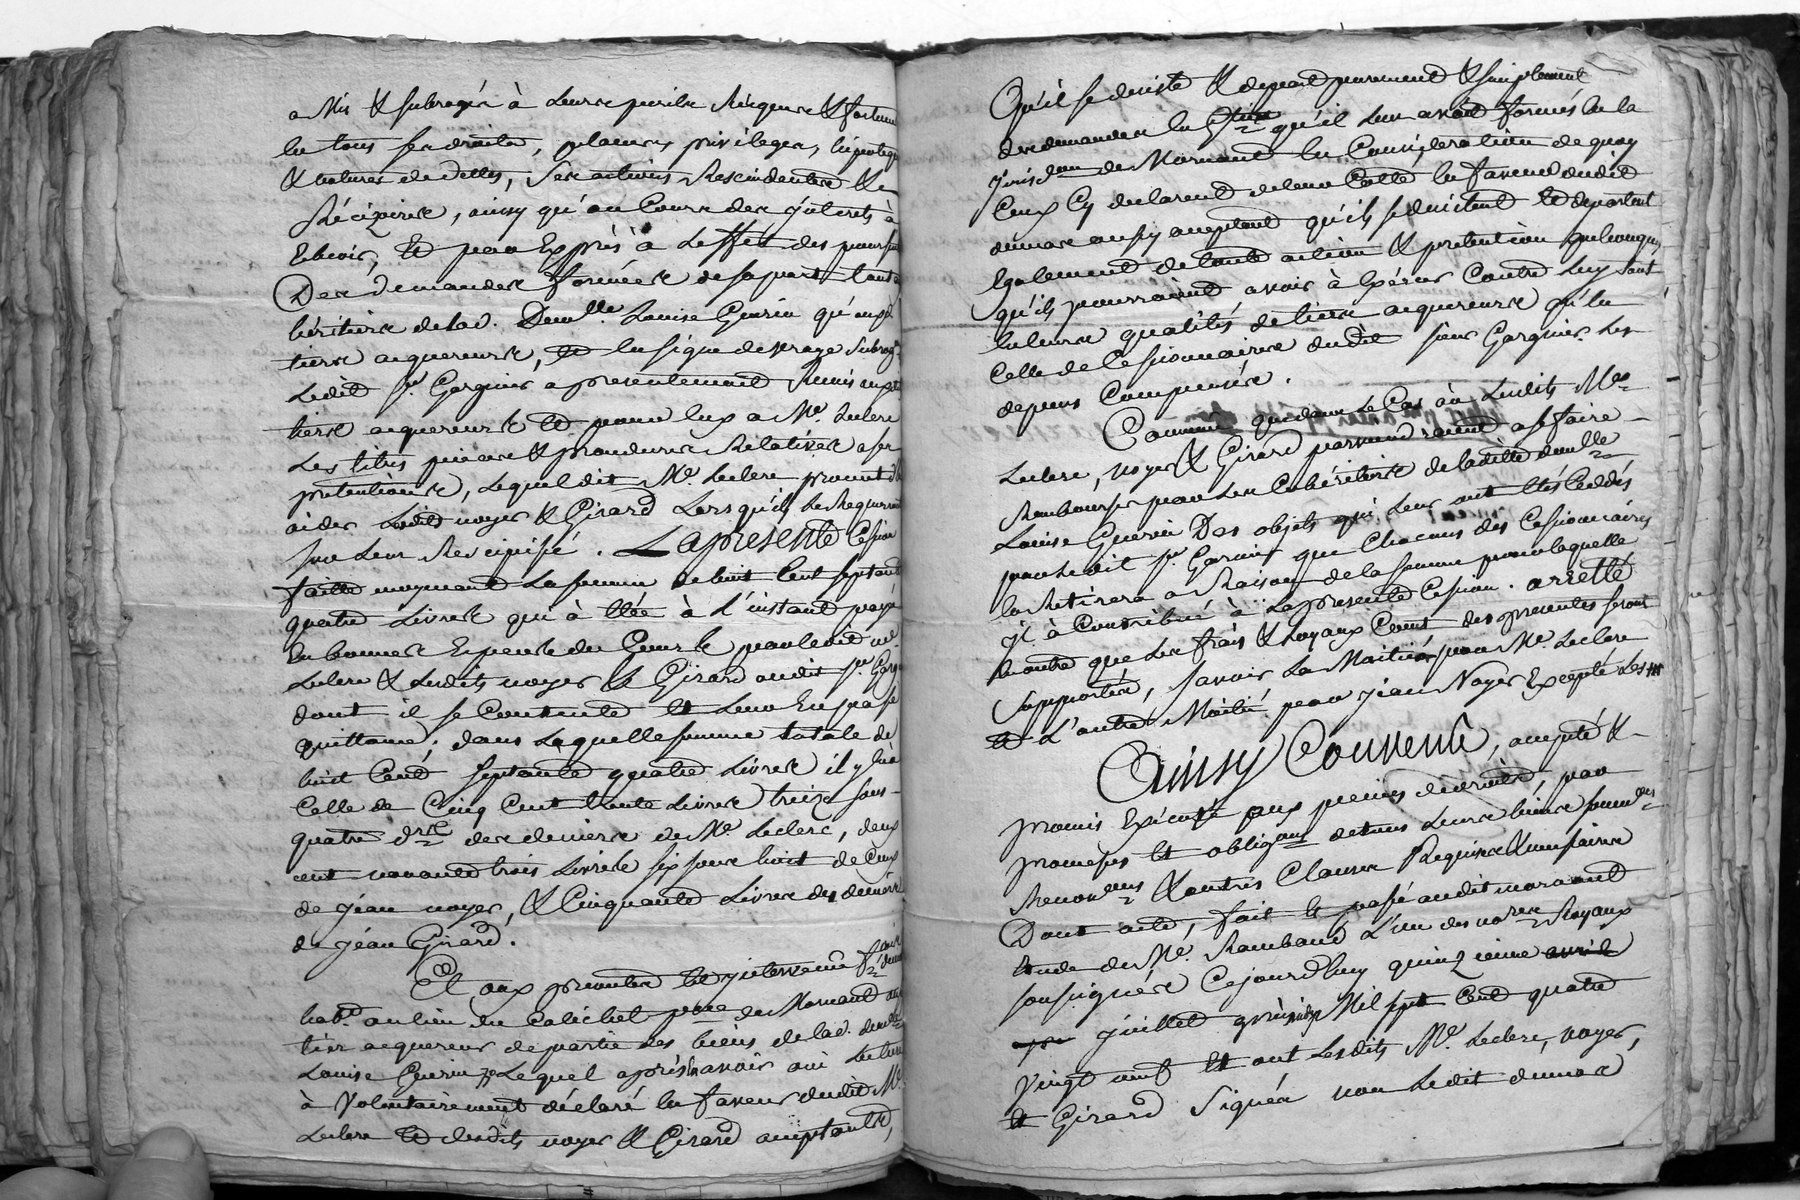 a Mis & subrogés à Leurs perils Risques & fortunes
en tous ses droits, places, privileges, hipoteques
& natures de dettes, ses actions Rescindentes &
Récizoires, ainsy qu'au Cours des jnterets à
Echoir, et pour Exprès à L'effet des
Des demandes formées de sa part tant
héritiers de lad. Demlle. Louise Guerin qu'aux
tiers acquereurs, et en signe de vraye
Ledit Sr. Gargnier a presentement Remis aux
tiers acquereurs et pour eux a Me. Leclerc
Les titres pieces & procedures Relatives a ses
pretentions, Lequel dit Me. Leclerc promet d'en
aider Lesdits noyer & Girard Lorsqu'ils Le Requerront
sur Leur Recipissé. La presente Cession
faitte moyenant La somme de huit Cent septante
quatre Livres qui à étée à L'instant payé
En bonnes Especes du Cours par ledit Me.
Leclerc & Lesdits noyer & Girard audit Sr.
dont il se Contente et Leur En passe
quittance; dans Laquelle somme totale de
huit Cent septante quatre Livres il y en a
Celle de Cinq Cent trente Livres treize sous
quatre drs. des deniers de Me. Leclerc, deux
cent nonante trois Livres six sous huit de Ceux
de jean noyer, & Cinquante Livres des deniers
de jean Girard.
Et aux presentes est jntervenu
habt. au lieu du Caléchet psse de Mornant
tier acquereur de partie des biens de lad. demlle
Louise Guerin Lequel après avoir oui Lecture
à Volontairement déclaré en faveur dudit Me.
Leclerc et desdits noyer & Girard acceptants,
Qu'il se deiste & depart purement & simplement
des demandes en Gtie. qu'il leur avoit formés en la
Jurisdon. de Mornant en Consideration de quoy
Ceux Cy declarent de leur Cotté en faveur dudit
dumas aussy acceptant qu'ils se deistent et departent
Egalement de toute action & pretention quelconques
qu'ils pourroient avoir à Exercer Contre Luy tant
en leurs qualités de tiers acquereurs qu'en
Celle de Cessionnaires dudit sieur Gargnier Les
depens Compensés.
Convenu que dans Le Cas où Lesdits Mes.
Leclerc, noyer & Girard parviendroient a se faire
Rembourser par Les Cohéritiers de ladite demlle
Louise Guerin Des objets qui Leur ont étés Cédés
par Ledit Sr. que Chacuns des Cessionnaires
en Retirera a Raison de la somme pour laquelle
jl à Contribué à La presente Cession. arretté
En outre que Les frais & Loyaux Couts des presentes seront
supportés, savoir La Moitié par Me. Leclerc
et L'autre Moitié par jean Noyer Excepté Les
Ainsy Convenu, accepté &
promis Exécuté aux peines de droits, par
promesses et obligons de tous Leurs biens
Renonons & autres Clauses Requises & necessaires
Dont acte, fait et passé audit mornant
Etude de Me. Rambaud L'un des nores Royaux
soussignés Ce jourd'huy quinzieme
juillet Mil sept Cent quatre
Vingt neuf et ont Lesdits Me. Leclerc, noyer,
et Girard Signés non Ledit dumas